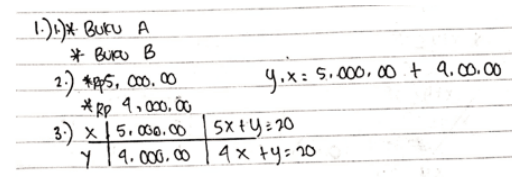 1.) 1.) * BUKU A
* BUKU B
2.) * Rp5, 000.00 y.x = 5.000,00 + 9.00.00
* Rp 9,000,00
3.) x | 5.000.00 | 5x + y = 20
y | 9.000.00 | 9x + y = 20